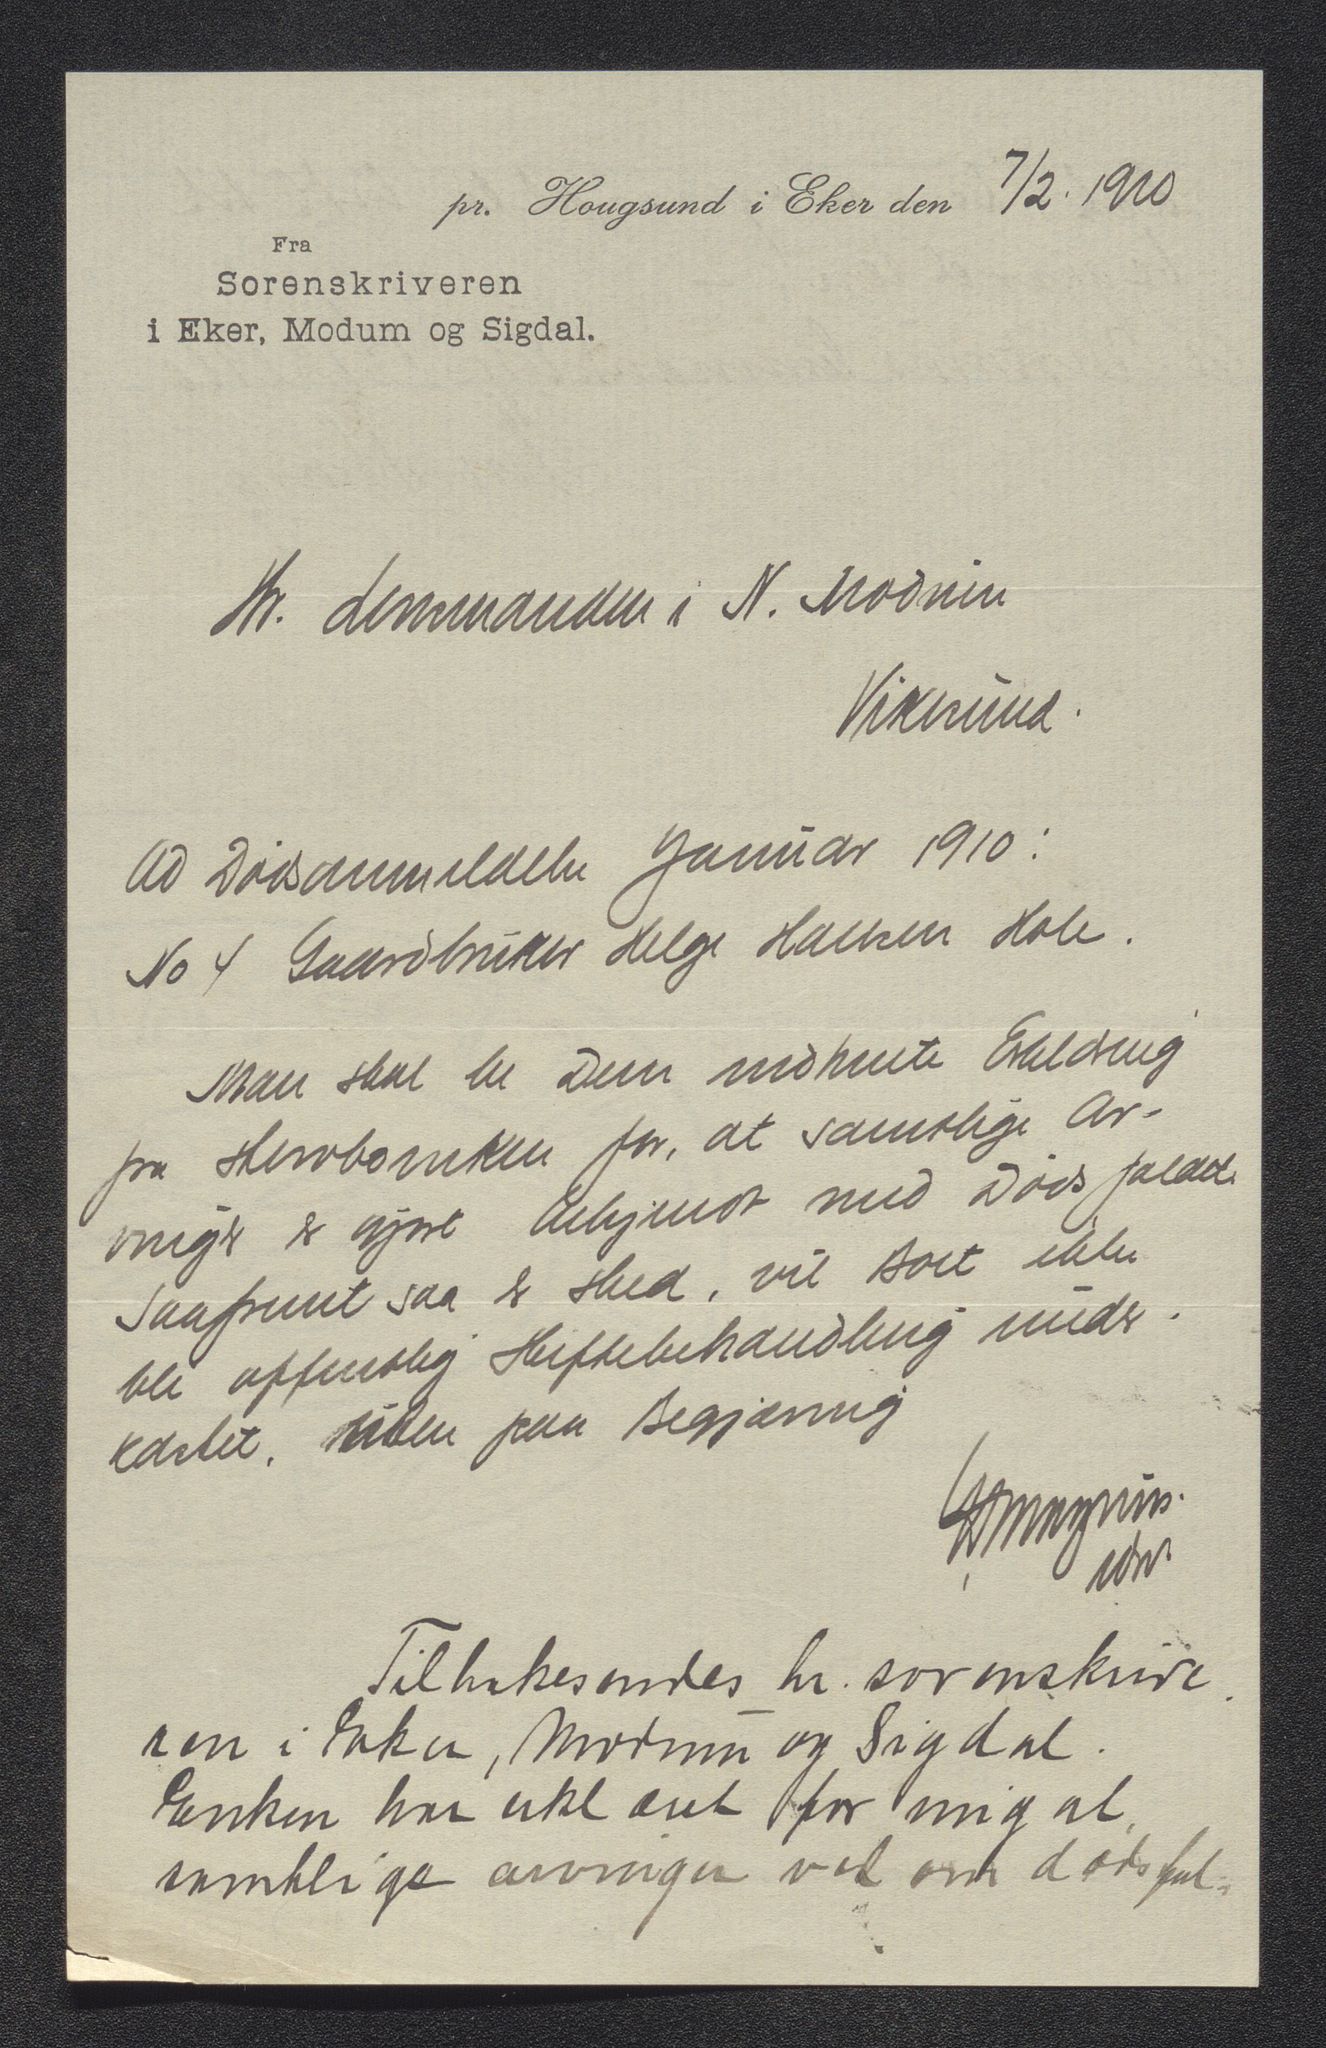 pr. Hougsund i Eker den 7/2. 1910
Fra
Sorenskriveren
i Eker, Modum og Sigdal.
Hr. Lensmanden i N. Modum
Vikersund.
Ad Dødsanmeldelse Januar 1910:
No 4 Gaardbruker Helge Hansen Hole.
Man skal be Dem indhente Erklæring
fra Stervboenken for, at samtlige Ar-
vinger er gjort bekjendt med Dødsfaldet.
Saafremt saa er skeed, vil Boet ikke
bli offentlig Skiftebehandling under-
kastet, uten paa Begjæring
Magnus.
Tilbakesendes hr. sorenskrive
ren i Eker, Modum og Sigdal.
Enken har erklæret for mig at
samtlige arvinger vet om dødsfal-